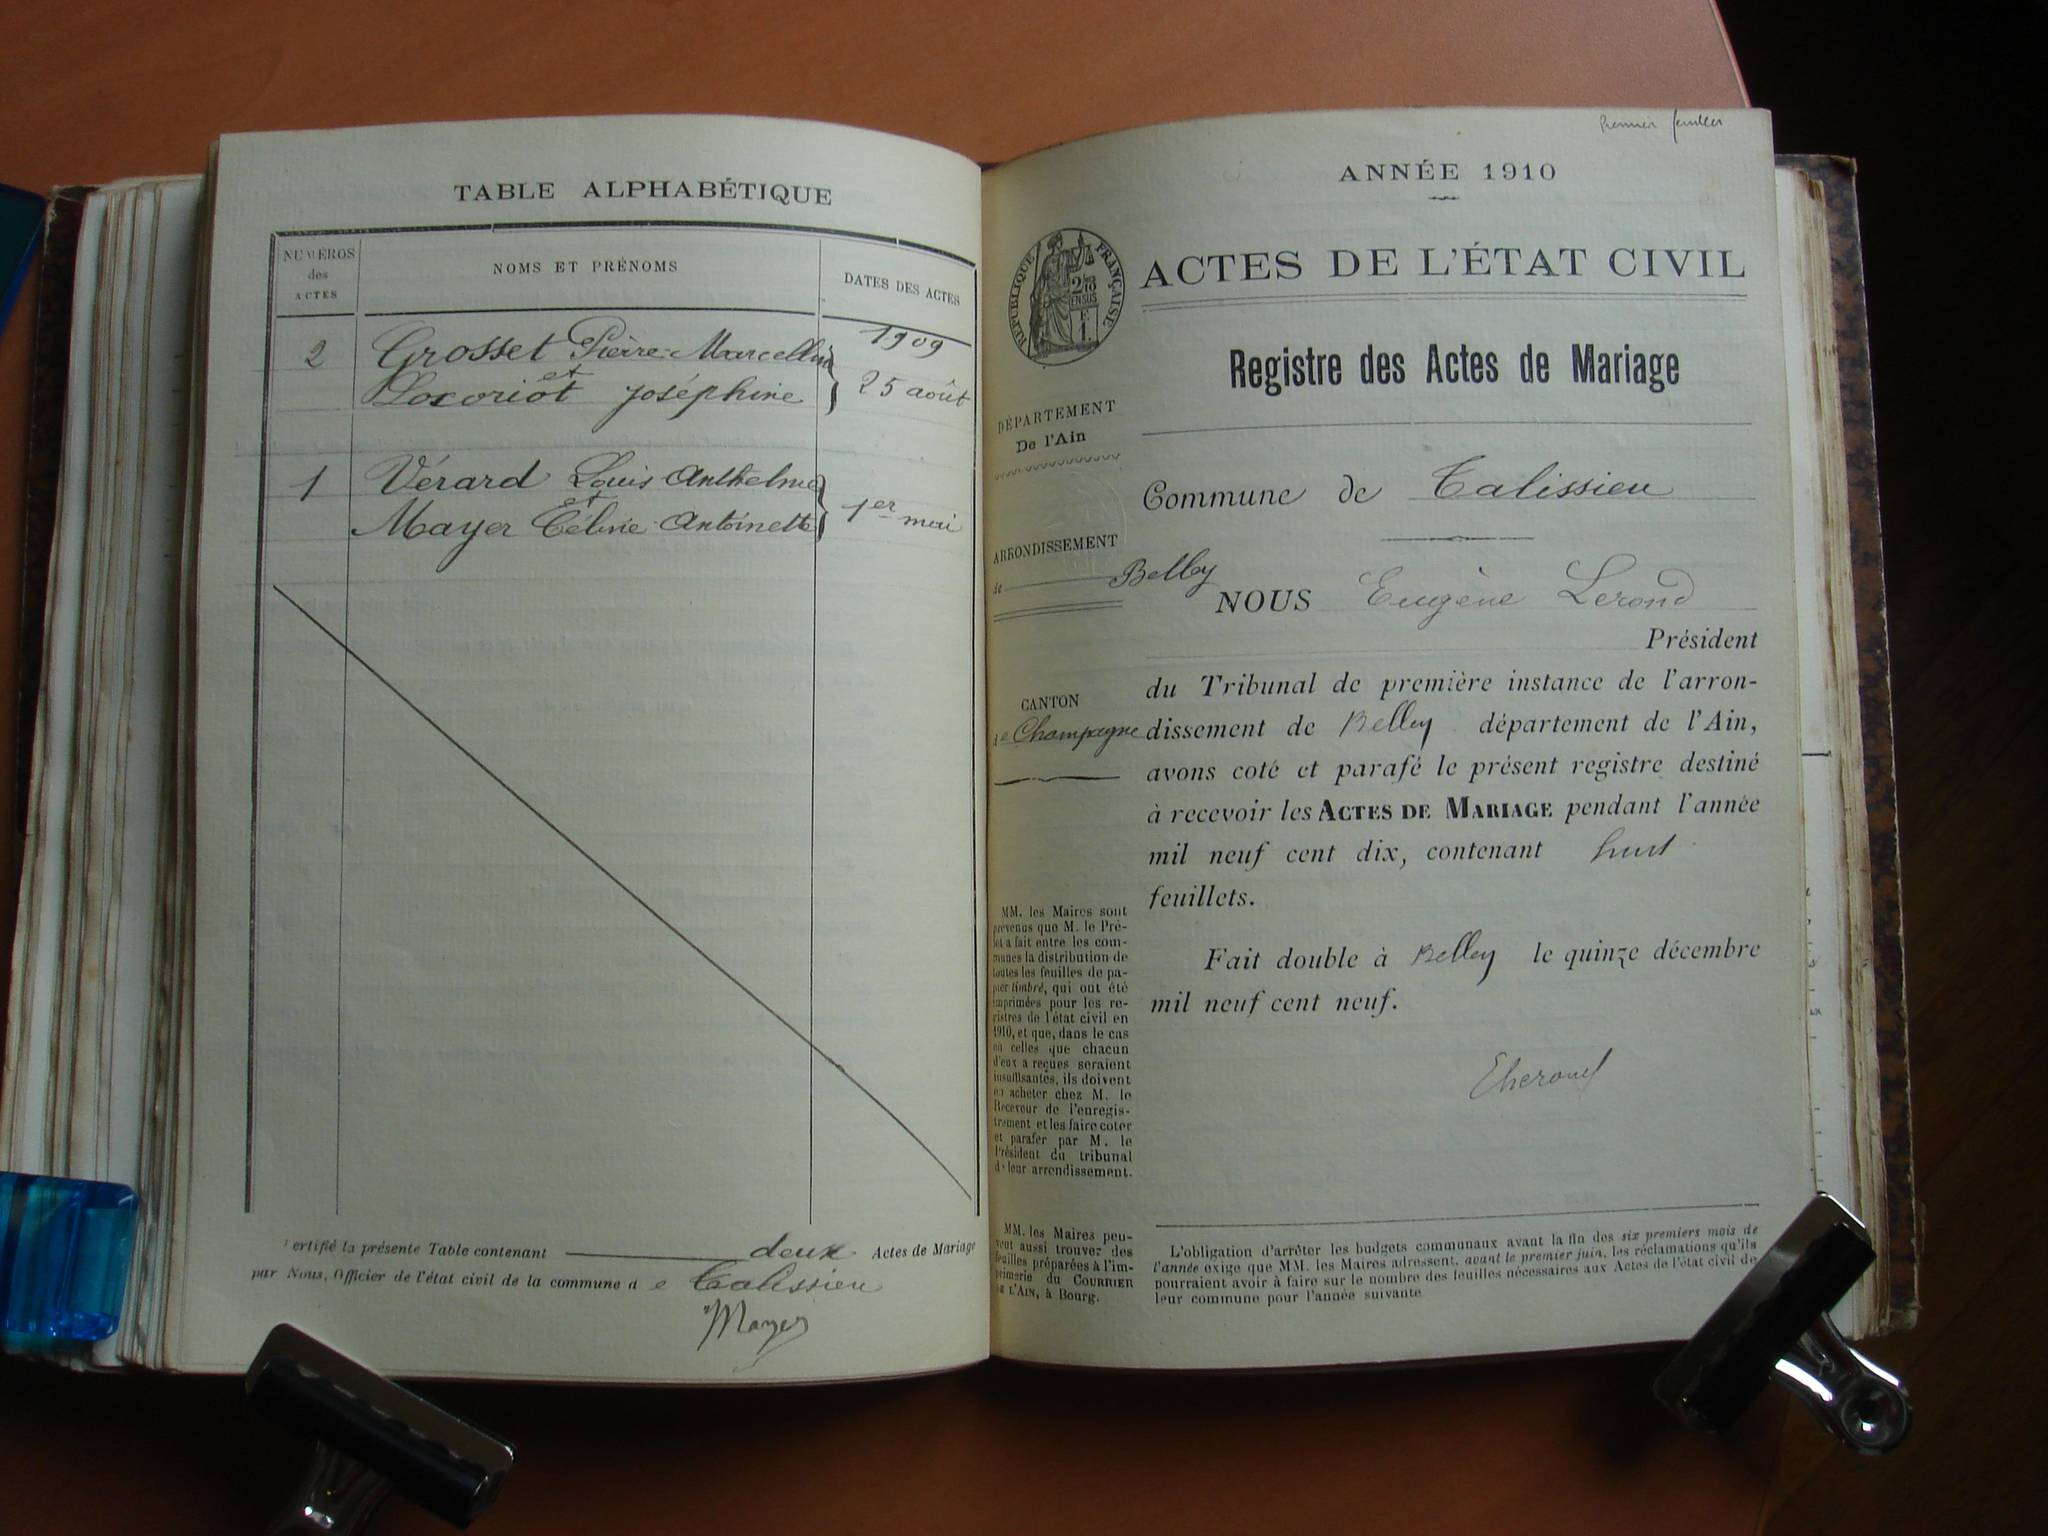 TABLE ALPHABÉTIQUE
NUMÉROS
des
ACTES
NOMS ET PRÉNOMS
DATES DES ACTES
1909
2 Grosset Pierre-Marcellin
et
Locoriot Joséphine
25 août
1 Vérard Louis Anthelme
et
Mayer Céline Antoinette
1er mai
ertifié la présente Table contenant deux Actes de Mariage
par Nous, Officier de l'état civil de la commune de Talissieu
Mayer
Premier feuillet
ANNÉE 1910
RÉPUBLIQUE FRANÇAISE
ACTES DE L'ÉTAT CIVIL
Registre des Actes de Mariage
DÉPARTEMENT
De l'Ain
Commune de Talissieu
ARRONDISSEMENT
de Belley
NOUS Eugène Lerond
Président
du Tribunal de première instance de l'arron-
dissement de Belley département de l'Ain,
avons coté et parafé le présent registre destiné
à recevoir les ACTES DE MARIAGE pendant l'année
mil neuf cent dix, contenant huit
feuillets.
Fait double à Belley le quinze décembre
mil neuf cent neuf.
CANTON
de Champagne
MM. les Maires sont
prévenus que M. le Pré-
fet a fait entre les com-
munes la distribution de
toutes les feuilles de pa-
pier timbré, qui ont été
imprimées pour les re-
gistres de l'état civil en
1910, et que, dans le cas
où celles que chacun
d'eux a reçues seraient
insuffisantes, ils doivent
en acheter chez M. le
Receveur de l'enregis-
trement et les faire coter
et parafer par M. le
Président du tribunal
de leur arrondissement.
MM. les Maires peu-
vent aussi trouver des
feuilles préparées à l'im-
primerie du COURRIER
DE L'AIN, à Bourg.
L'obligation d'arrêter les budgets communaux avant la fin des six premiers mois de
l'année exige que MM. les Maires adressent, avant le premier juin, les réclamations qu'ils
pourraient avoir à faire sur le nombre des feuilles nécessaires aux Actes de l'état civil de
leur commune pour l'année suivante